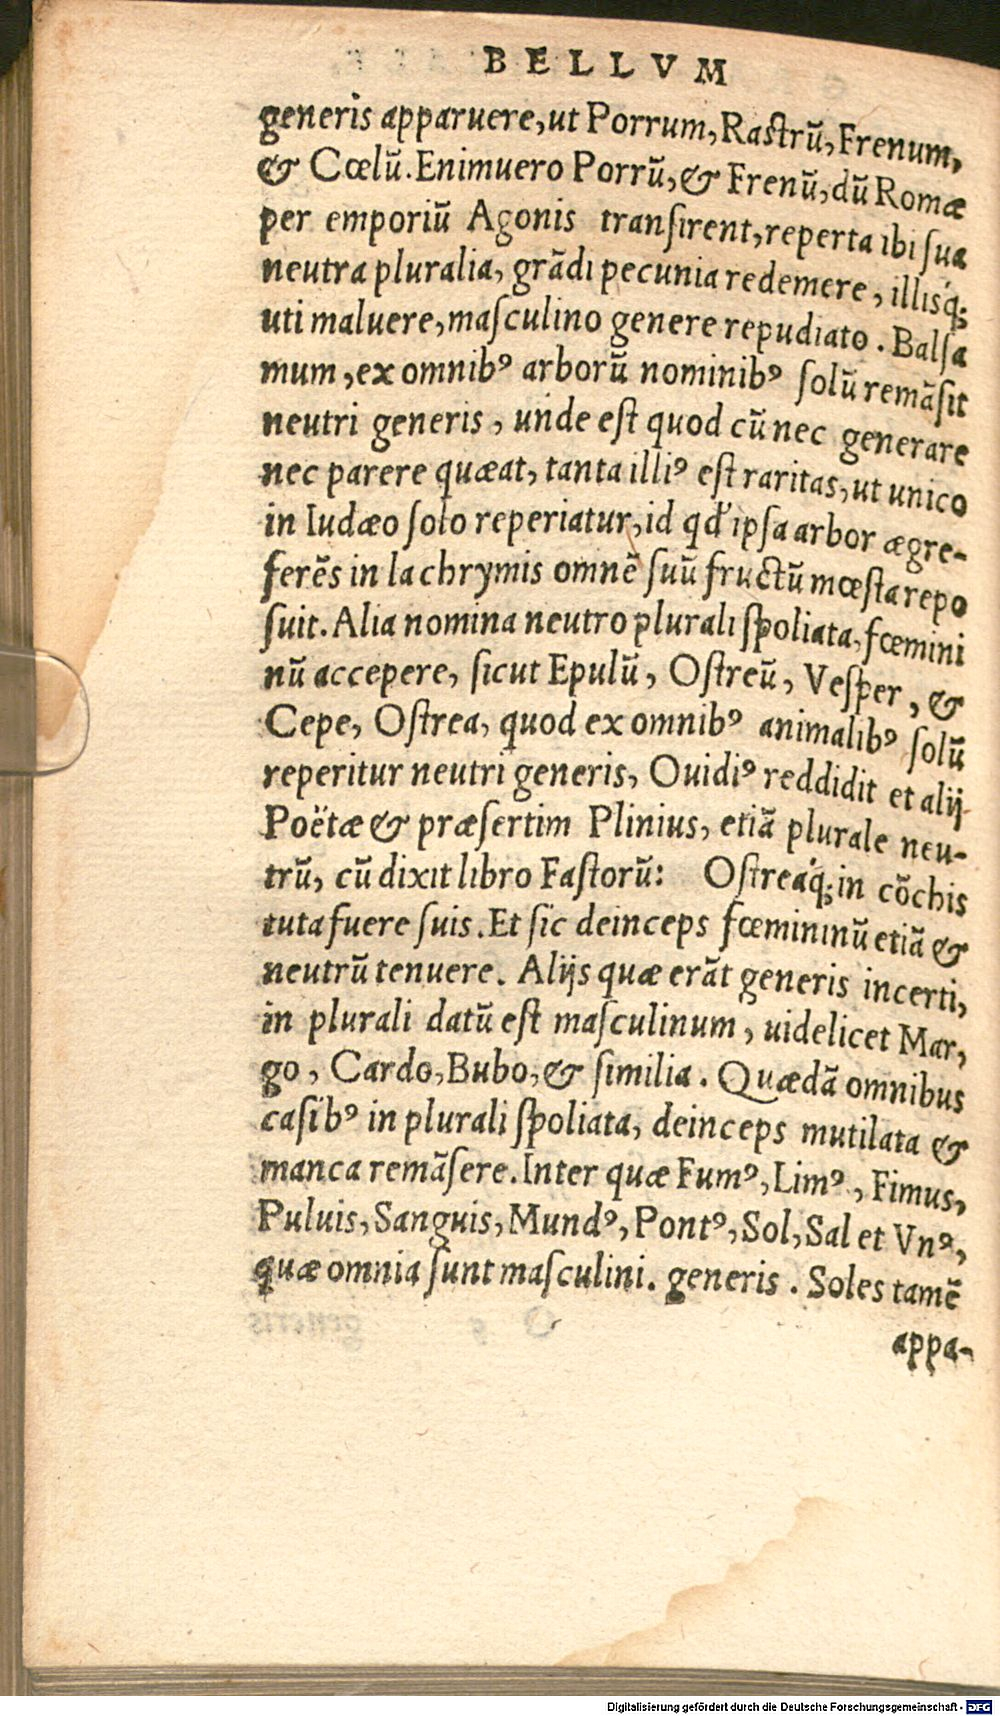 BELLVM
generis apparuere, ut Porrum, Rastrū, Frenum,
& Cœlū. Enimuero Porrū, & Frenū, dū Romæ
per emporiū Agonis transirent, reperta ibi sua
neutra pluralia, grādi pecunia redemere, illisq́;
uti maluere, masculino genere repudiato. Balsa
mum, ex omnibꝰ arborū nominibꝰ solū remāsit
neutri generis, unde est quod cū nec generare
nec parere quæat, tanta illiꝰ est raritas, ut unico
in Iudæo solo reperiatur, id qđ ipsa arbor ægre-
ferēs in lachrymis omnē suū fructū mœsta repo
suit. Alia nomina neutro plurali spoliata, fœmini
nū accepere, sicut Epulū, Ostreū, Vesper, &
Cepe, Ostrea, quod ex omnibꝰ animalibꝰ solū
reperitur neutri generis, Ouidiꝰ reddidit et alij
Poëtæ & præsertim Plinius, etiā plurale neu-
trū, cū dixit libro Fastorū: Ostreáq; in cōchis
tuta fuere suis. Et sic deinceps fœmininū etiā &
neutrū tenuere. Alijs quæ erāt generis incerti,
in plurali datū est masculinum, uidelicet Mar,
go, Cardo, Bubo, & similia. Quædā omnibus
casibꝰ in plurali spoliata, deinceps mutilata &
manca remāsere. Inter quæ Fumꝰ, Limꝰ, Fimus,
Puluis, Sanguis, Mundꝰ, Pontꝰ, Sol, Sal et Vnꝰ,
quæ omnia sunt masculini. generis. Soles tamē
appa-
Digitalisierung gefördert durch die Deutsche Forschungsgemeinschaft - DFG